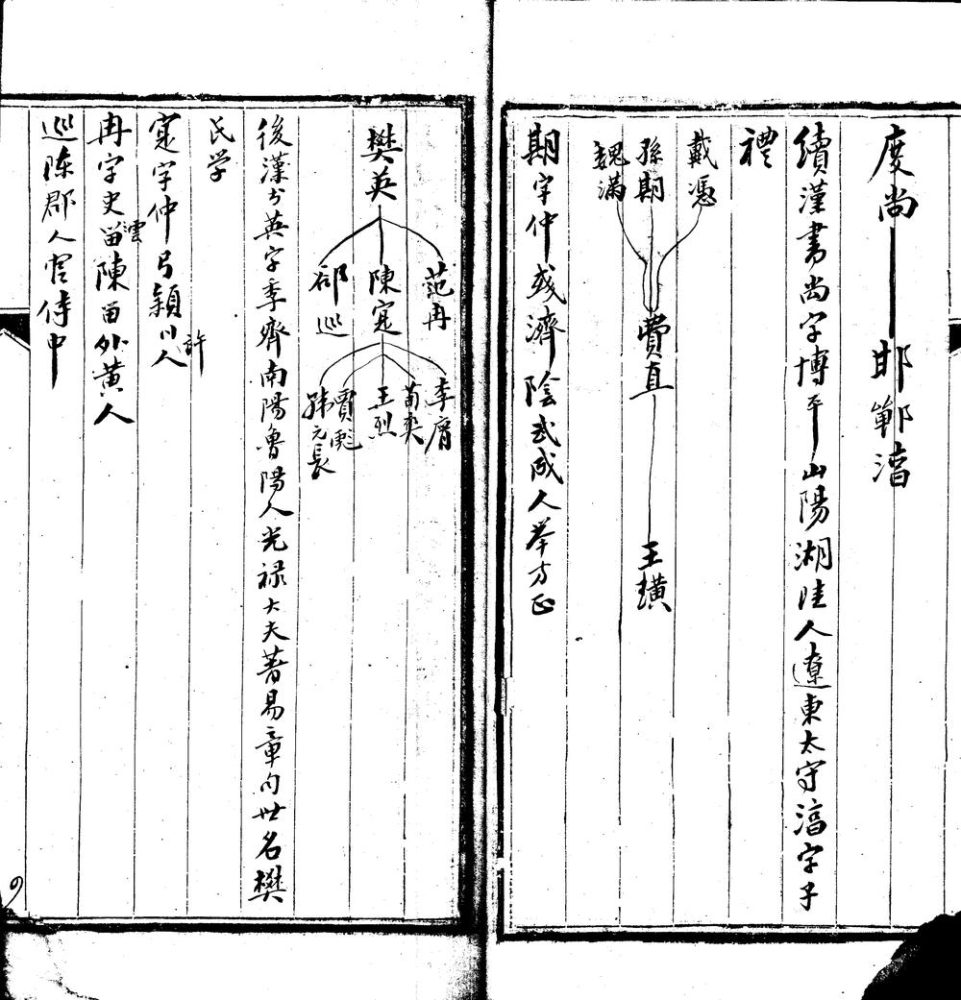 度尚 邯鄲淳
續漢書尚字博平山陽湖陸人遼東太守淳字子
禮
戴憑
孫期 費直 王璜
魏滿
期字仲彧濟陰武成人举方正
樊英
范冉
陳寔
郤巡
李膺
荀爽
王烈
賈彪
韩元長
後漢書英字季齊南陽魯陽人光禄大夫著易章句世名樊
氏学
寔字仲弓潁川許人
冉字史雲陳留外黄人
巡陈郡人官侍中